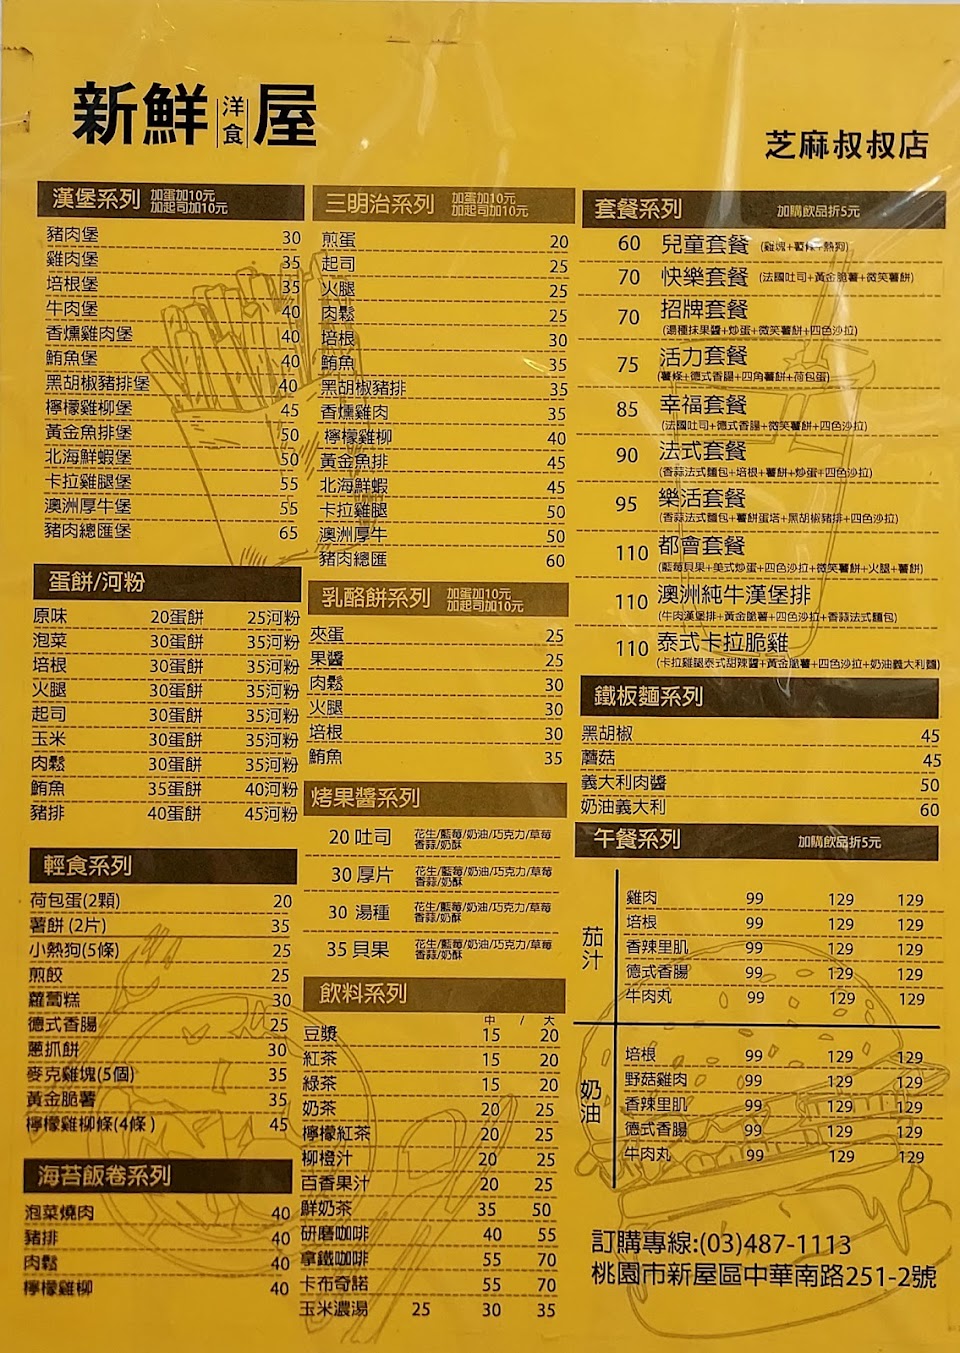 新鮮洋食屋
芝麻叔叔店
漢堡系列 加蛋加10元
加起司加10元
豬肉堡 30
雞肉堡 35
培根堡 35
牛肉堡 40
香燻雞肉堡 40
鮪魚堡 40
黑胡椒豬排堡 40
檸檬雞柳堡 45
黃金魚排堡 50
北海鮮蝦堡 50
卡拉雞腿堡 55
澳洲厚牛堡 55
豬肉總匯堡 65
蛋餅/河粉
原味 20蛋餅 25河粉
泡菜 30蛋餅 35河粉
培根 30蛋餅 35河粉
火腿 30蛋餅 35河粉
起司 30蛋餅 35河粉
玉米 30蛋餅 35河粉
肉鬆 30蛋餅 35河粉
鮪魚 35蛋餅 40河粉
豬排 40蛋餅 45河粉
輕食系列
荷包蛋(2顆) 20
薯餅(2片) 35
小熱狗(5條) 25
煎餃 25
蘿蔔糕 30
德式香腸 25
蔥抓餅 30
麥克雞塊(5個) 35
黃金脆薯 35
檸檬雞柳條(4條) 45
海苔飯卷系列
泡菜燒肉 40
豬排 40
肉鬆 40
檸檬雞柳 40
三明治系列 加蛋加10元
加起司加10元
煎蛋 20
起司 25
火腿 25
肉鬆 25
培根 30
鮪魚 35
黑胡椒豬排 35
香燻雞肉 35
檸檬雞柳 40
黃金魚排 45
北海鮮蝦 45
卡拉雞腿 50
澳洲厚牛 50
豬肉總匯 60
乳酪餅系列 加蛋加10元
加起司加10元
夾蛋 25
果醬 25
肉鬆 30
火腿 30
培根 30
鮪魚 35
烤果醬系列
20 吐司 花生/藍莓/奶油/巧克力/草莓
香蒜/奶酥
30 厚片 花生/藍莓/奶油/巧克力/草莓
香蒜/奶酥
30 湯種 花生/藍莓/奶油/巧克力/草莓
香蒜/奶酥
35 貝果 花生/藍莓/奶油/巧克力/草莓
香蒜/奶酥
飲料系列
中 / 大
豆漿 15 20
紅茶 15 20
綠茶 15 20
奶茶 20 25
檸檬紅茶 20 25
柳橙汁 20 25
百香果汁 20 25
鮮奶茶 35 50
研磨咖啡 40 55
拿鐵咖啡 55 70
卡布奇諾 55 70
玉米濃湯 25 30 35
套餐系列 加購飲品折5元
60 兒童套餐 (雞塊+薯條+熱狗)
70 快樂套餐 (法國吐司+黃金脆薯+微笑薯餅)
70 招牌套餐
(湯種抹果醬+炒蛋+微笑薯餅+四色沙拉)
75 活力套餐
(薯條+德式香腸+四角薯餅+荷包蛋)
85 幸福套餐
(法國吐司+德式香腸+微笑薯餅+四色沙拉)
90 法式套餐
(香蒜法式麵包+培根+薯餅+炒蛋+四色沙拉)
95 樂活套餐
(香蒜法式麵包+薯餅蛋塔+黑胡椒豬排+四色沙拉)
110 都會套餐
(藍莓貝果+美式炒蛋+四色沙拉+微笑薯餅+火腿+薯餅)
110 澳洲純牛漢堡排
(牛肉漢堡排+黃金脆薯+四色沙拉+香蒜法式麵包)
110 泰式卡拉脆雞
(卡拉雞腿泰式甜辣醬+黃金脆薯+四色沙拉+奶油義大利麵)
鐵板麵系列
黑胡椒 45
蘑菇 45
義大利肉醬 50
奶油義大利 60
午餐系列 加購飲品折5元
茄汁
雞肉 99 129 129
培根 99 129 129
香辣里肌 99 129 129
德式香腸 99 129 129
牛肉丸 99 129 129
奶油
培根 99 129 129
野菇雞肉 99 129 129
香辣里肌 99 129 129
德式香腸 99 129 129
牛肉丸 99 129 129
訂購專線:(03)487-1113
桃園市新屋區中華南路251-2號